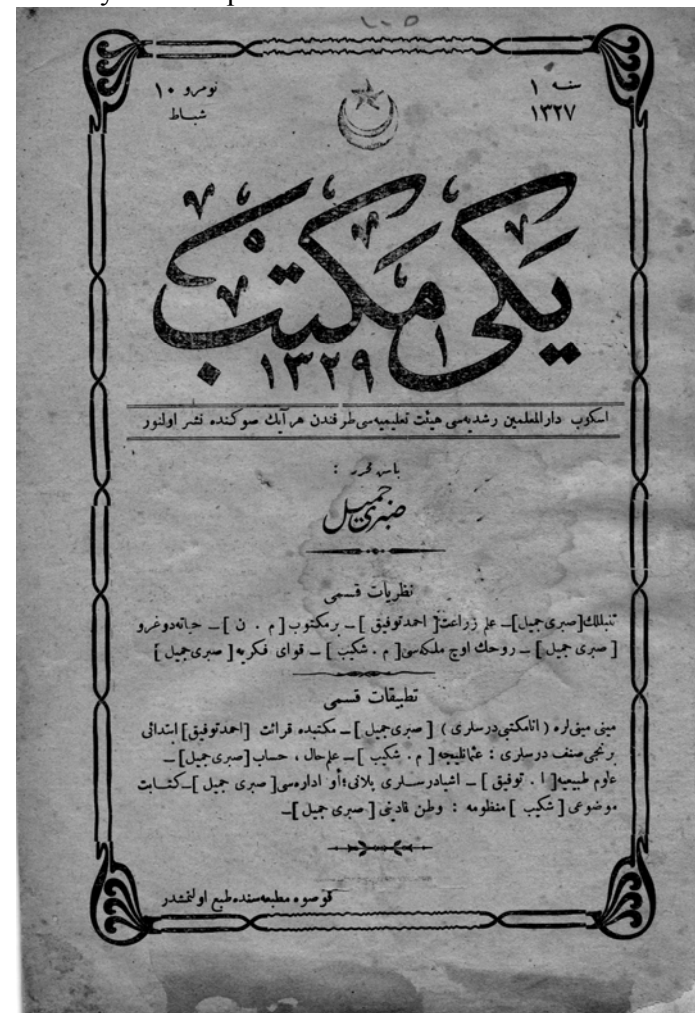 ١٠٥
سنه ١
١٣٢٧
نومرو ١٠
شباط
يكى مكتب
١٣٢٩
اسكوب دارالمعلمين رشديه‌سى هيئت تعليميه‌سى طرفندن هر آيك صوكنده نشر اولنور
باش محرر :
صبرى جميل
نظريات قسمى
تنبللك [صبرى جميل] ــ علم زراعت [احمد توفيق] ــ بر مكتوب [م . ن] ــ حياته دوغرو
[صبرى جميل] ــ روحك اوچ ملكه‌سى [م . شكيب] ــ قواى فكريه [صبرى جميل]
تطبيقات قسمى
مينى مينى لره (انا مكتبى درسلرى) [صبرى جميل] ــ مكتبده قرائت [احمد توفيق] ابتدائى
برنجى صنف درسلرى : عثمانليجه [م . شكيب] ــ علم حال ، حساب [صبرى جميل] ــ
علوم طبيعيه [ا . توفيق] ــ اشيا درسلرى پلانى ؛ أو اداره‌سى [صبرى جميل] ــ كتابت
موضوعى [شكيب] منظومه : وطن قادينى [صبرى جميل] ــ
قوصوه مطبعه‌سنده طبع اولنمشدر